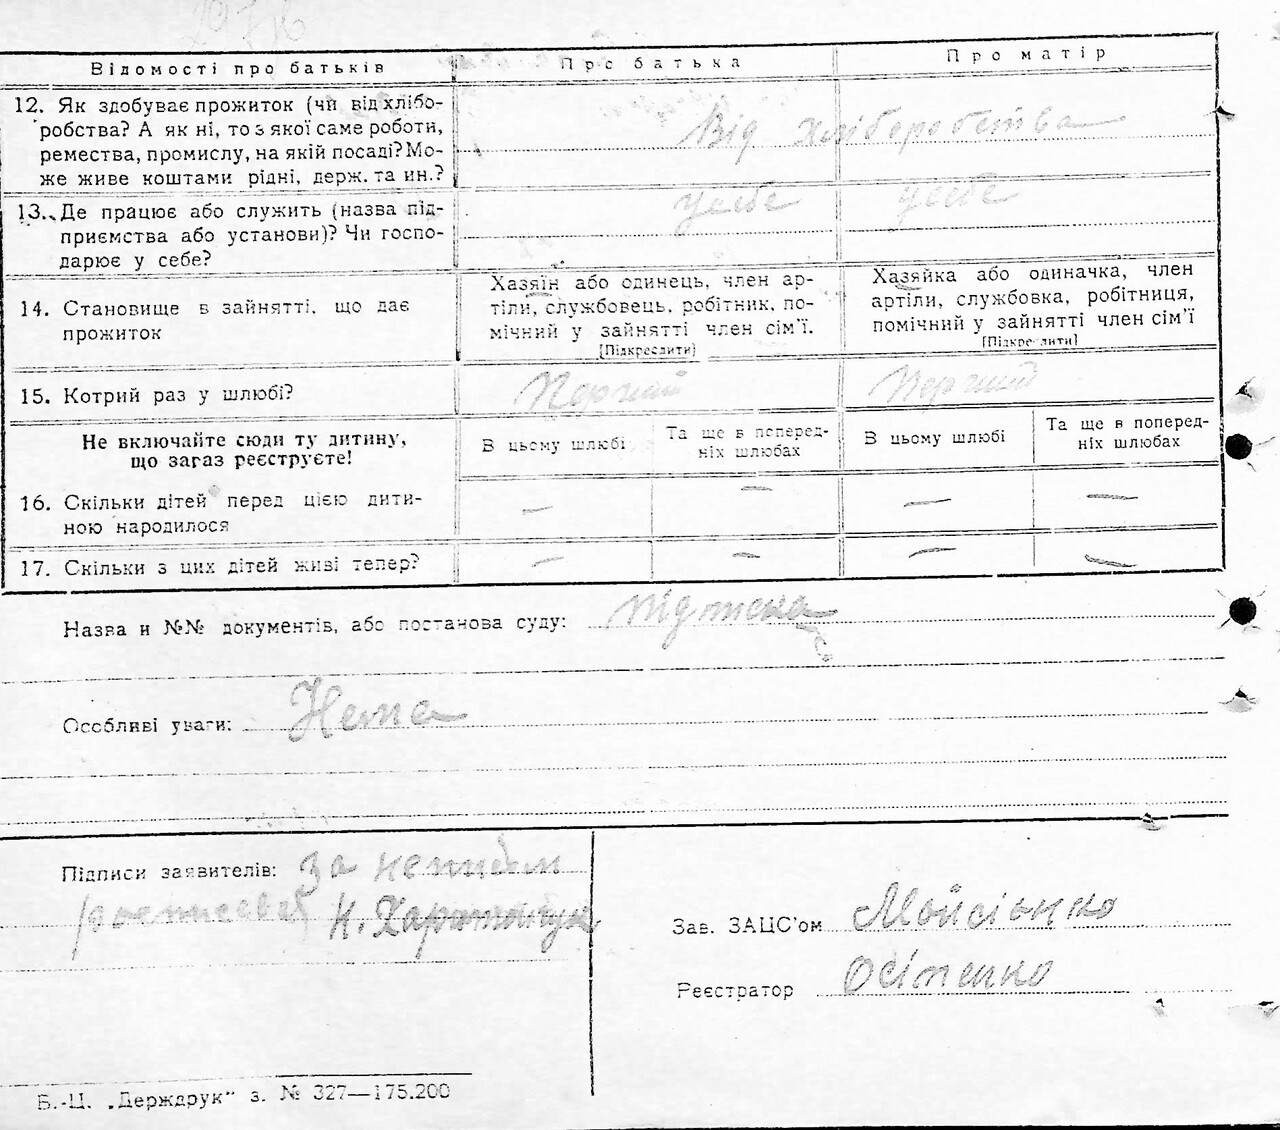 Відомості про батьків Про батька Про матір
12. Як здобуває прожиток (чи від хлібо-
робства? А як ні, то з якої саме роботи,
ремества, промислу, на якій посаді? Мо-
же живе коштами рідні, держ. та ин.?
Від хліборобства
13. Де працює або служить (назва під-
приємства або установи)? Чи госпо-
дарює у себе?
усебе усебе
14. Становище в зайнятті, що дає
прожиток
Хазяїн або одинець, член ар-
тіли, службовець, робітник, по-
мічний у зайнятті член сім'ї.
[Підкреслити]
Хазяйка або одиначка, член
артіли, службовка, робітниця,
помічний у зайнятті член сім'ї
[Підкреслити]
15. Котрий раз у шлюбі? Перчий Перчий
Не включайте сюди ту дитину,
що загаз реєструєте!
В цьому шлюбі
Та ще в поперед-
ніх шлюбах
В цьому шлюбі
Та ще в поперед-
ніх шлюбах
16. Скільки дітей перед цією дити-
ною народилося
— — — —
17. Скільки з цих дітей живі тепер? — — — —
Назва и №№ документів, або постанова суду: підписка
Особливі уваги: Нема
Підписи заявителів: За
Н. Харитончук
Зав. ЗАЦС'ом Мойсієнко
Реєстратор Осіпенко
Б.-Ц. „Держдрук" з. № 327—175.200